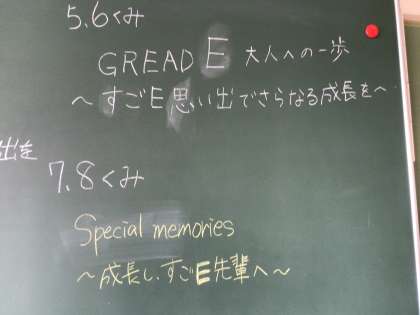 5.6くみ
GREAD E 大人への一歩
〜すごE思い出でさらなる成長を〜
出を
7.8くみ
Special memories
〜成長し、すごE先輩へ〜